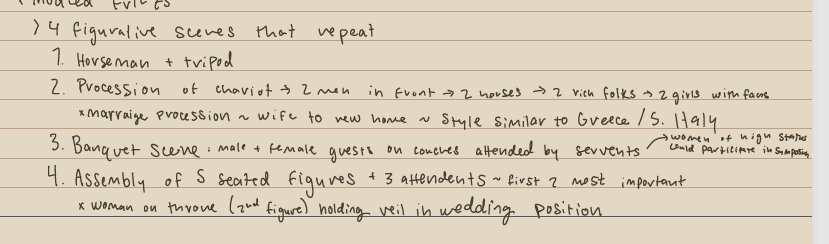 > 4 figurative scenes that repeat
1. Horseman + tripod
2. Procession of chariot → 2 men in front → 2 horses → 2 rich folks → 2 girls with fans
x marraige procession ~ wife to new home ~ style similar to Greece / S. Italy
3. Banquet scene : male + female guests on couches attended by servents → women of high status
could participate in symposium
4. Assembly of 5 seated figures + 3 attendents ~ first 2 most important
x woman on throne (2nd figure) holding veil in wedding position